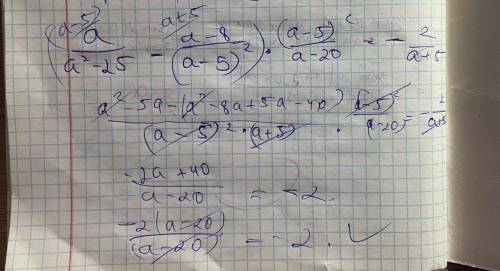 (a-5)   a+5
( a / (a²-25) - (a-8) / (a-5)² ) · (a-5)² / (a-20) = - 2 / (a+5)
(a²-5a-(a²-8a+5a-40)) / ((a-5)²·(a+5)) · (a-5)² / (a-20) = 2 / (a+5)
(-2a+40) / (a-20) = -2.
-2(a-20) / (a-20) = -2. ✓